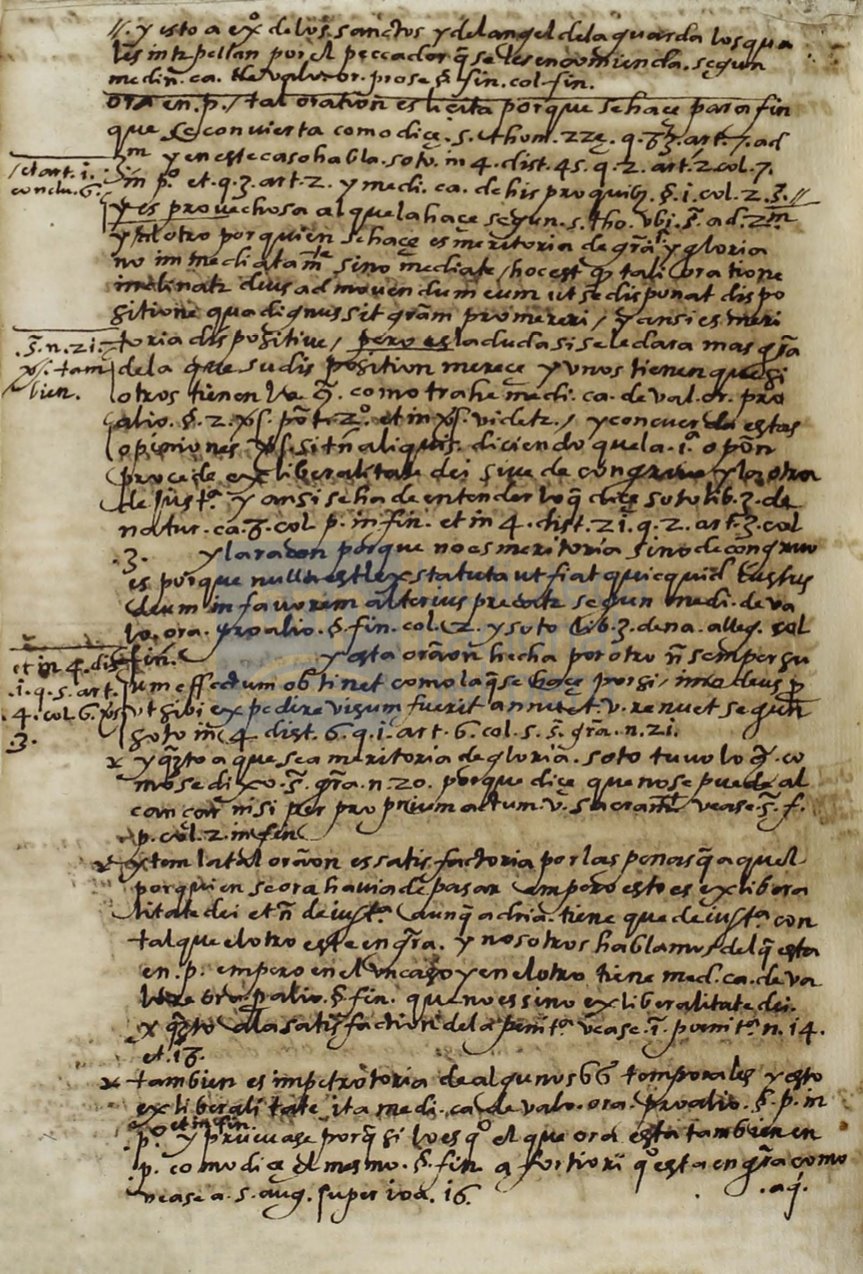 //. y esto a exº de los sanctos y del angel de la guarda los qua
les intrpellan por el peccador q̃ se les encomienda. segun
medin̄. ca. de valor or. pro se §. fin. col. fin.
ora en. p. / tal oration es licita porque se haçe para fin
que se convierta como diçe. s. thom. 22ę. q. 83. art. 7. ad
3m y en este caso habla. soto. in 4. dist. 45. q. 2. art. 2 col. 7.
/et art. 1.
conclu. 6.
in pº et. q. 3. art. 2. y medi. ca. de his pro quib9. §. 1. col. 2. 3. //
y es provechosa al que la haçe segun. s. tho. vbi. s̄. ad. 2m
y al otro por quien se haçe es meritoria de grã y gloria
no immediatamte sino mediate / hoc est q tali oratione
inclinatr deus ad movendum eum ut se disponat dispo
sitione qua dignus sit grãm promereri / y ansi es meri
.s̄. n. 21.
tam
bien.
toria dispositive / pero es la duda si se le dara mas grã
de la que su disposition mereçe y unos tienen que si
otros tienen como trahe medi. ca. de val. or. pro
alio. §. 2. et in videtr. / y concuerda estas
opiniones si tn̄ aliquis. diciendo que la. 1ª opōn
proçede ex liberalitate dei sive de congruo y la otra
de justª y ansi se ha de entender lo q̃ diçe soto lib. 3. de
natur. ca. 8. col p. in fin. et in 4. dist. 21. q. 2. art. 3. col
.3. y la raçon porque no es meritoria sino de congruo
es porque nulla est lex statuta ut fiat quicquid justus
deum in favorem alterius precatr segun medi. de va
lo. ora. pro alio. §. fin. col. 2. y soto lib. 3. de na. alleg. col
fin. y esta orãon hecha por otro n̄ semper su
et in 4. dist
.1. q. 5. art.
.4. col. 6.
.3.
um effectum obtinet como la q̃ se haçe por si / imo deus
ut sibi expedire visum fuerit annuet. v. renuet segun
soto in 4 dist. 6. q. 1. art. 6. col. 5. s̄. grã. n. 21.
y qto a que sea meritoria de gloria. soto tuvo lo co
mo se dixo. s̄. grã. n. 20. porque diçe que no se puede al
cançar nisi per proprium actum. v. sacramtl vease. s̄. f.
p. col. 2. in fin
ytem la tal orãon es satisfactoria por las penas q̃ aquel
por quien se ora havia de pasar empero esto es ex libera
litate dei et n̄ de justª aunq̃ adria. tiene que de justª con
tal que el otro este en grã. y nosotros hablamos del q̃ esta
en. p. empero en el un caso y en el otro tiene med. ca. de va
lore ora. p alio. §. fin. que no es sino ex liberalitate dei.
y qto a la satisfaction de la penitª vease. i. penitª n. 14.
et. 18.
tambien es impetratoria de algunos bb temporales y esto
ex liberalitate ita medi. ca de valo. ora. pro alio. §. p. in
et in fin.
p. y pruevase porq̃ si lo es qº el que ora esta tambien en
.p. como diçe el mesmo. §. fin a fortiori qº esta en grã como
vease a. s. aug. super ioa. 16.
. aq́.